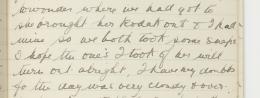 wonder where we had got to
she brought her Kodak out & I had
mine so we both took some snaps
I hope the one's I took of her will
turn out alright, I have my doubts
for the day was very cloudy over.